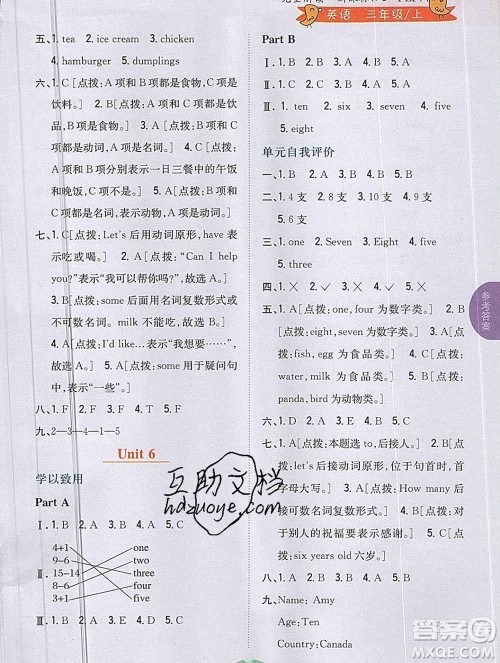 英语 三年级/上
五、1. tea 2. ice cream 3. chicken
4. hamburger 5. dumplings
六、1. C[点拨：A项和B项都是食物，C项是
饮料。] 2. B[点拨：A项和C项都是饮
品，B项是食物。] 3. C[点拨：A项和B
项是名词，C项是动词。] 4. C[点拨：A
项和B项分别表示一日三餐中的午饭
和晚饭，C项不是。] 5. A[点拨：B项和
C项都是名词，表示动物，A项是动词。]
七、1. C[点拨：Let's后用动词原形，have表
示吃或喝。] 2. A[点拨：“Can I help
you?”表示“我可以帮助你吗?”，故选A。]
3. B[点拨：some后面用名词复数形式或
不可数名词。milk不可数，故选B。]
4. A[点拨：I'd like…表示“我想要…”，
故选A。] 5. A[点拨：some用于疑问句
中，表示“一些”。]
八、1. F 2. T 3. F 4. T 5. F
九、2—3—4—1—5
Unit 6
学以致用
Part A
Ⅰ. 1. B 2. A 3. B 4. A 5. B
Ⅱ.
4+1 one
9-6 two
15-14 three
8-4 four
3+1 five
Ⅲ. 1. B 2. A 3. B 4. C 5. A
Part B
Ⅰ. 1. C 2. B 3. A 4. B 5. A
Ⅱ. 1. ten 2. six 3. seven 4. five
5. eight
单元自我评价
一、1. B 2. A 3. A 4. B 5. A
二、1. 4支 2. 8支 3. 10支 4. 2支
5. 9支
三、1. one 2. Seven 3. Eight 4. five
5. five
四、1. × 2. √ 3. × 4. √ 5. √
五、1. A[点拨：one, four为数字类。] 2. C
[点拨：eight, seven为数字类。] 3. A
[点拨：fish, egg为食品类。] 4. C[点拨：
water, milk为食品类。] 5. B[点拨：
panda, bird为动物类。]
六、1. D 2. C 3. E 4. A 5. B
七、1. A[点拨：本题选to，后接人。] 2. C[点
拨：let's后接动词原形，位于句首时，首
字母大写。] 3. A[点拨：How many后接
可数名词复数形式。] 4. B[点拨：对
于别人的祝福要表示感谢。] 5. C[点
拨：six years old六岁。]
八、1. C 2. D 3. B 4. E 5. A
九、Name: Amy
Age: Ten
Country: Canada
参考答案
互助文档
hdzuoye.com
答案圈
MXQE.COM